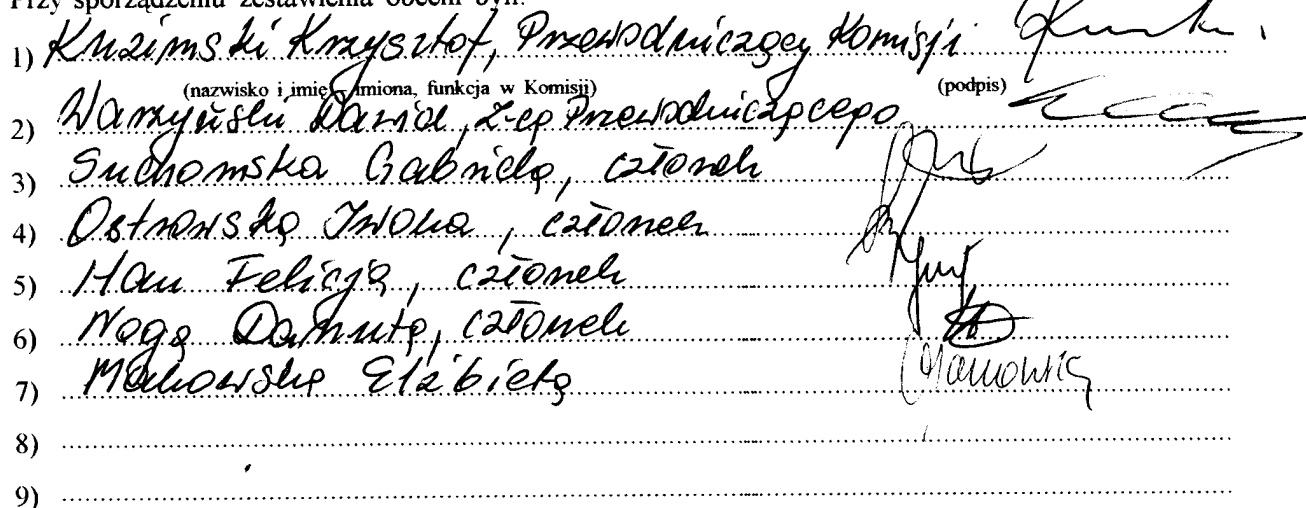 Przy sporządzeniu zestawienia obecni byli:
1) Kuzimski Krzysztof, Przewodniczący Komisji
(nazwisko i imię – imiona, funkcja w Komisji) (podpis)
2) Warzyński Dawid, Z-ca Przewodniczącego
3) Suchomska Gabriela, członek
4) Ostrowska Iwona, członek
5) Hau Felicja, członek
6) Naga Danuta, członek
7) Makowska Elżbieta
8)
9)